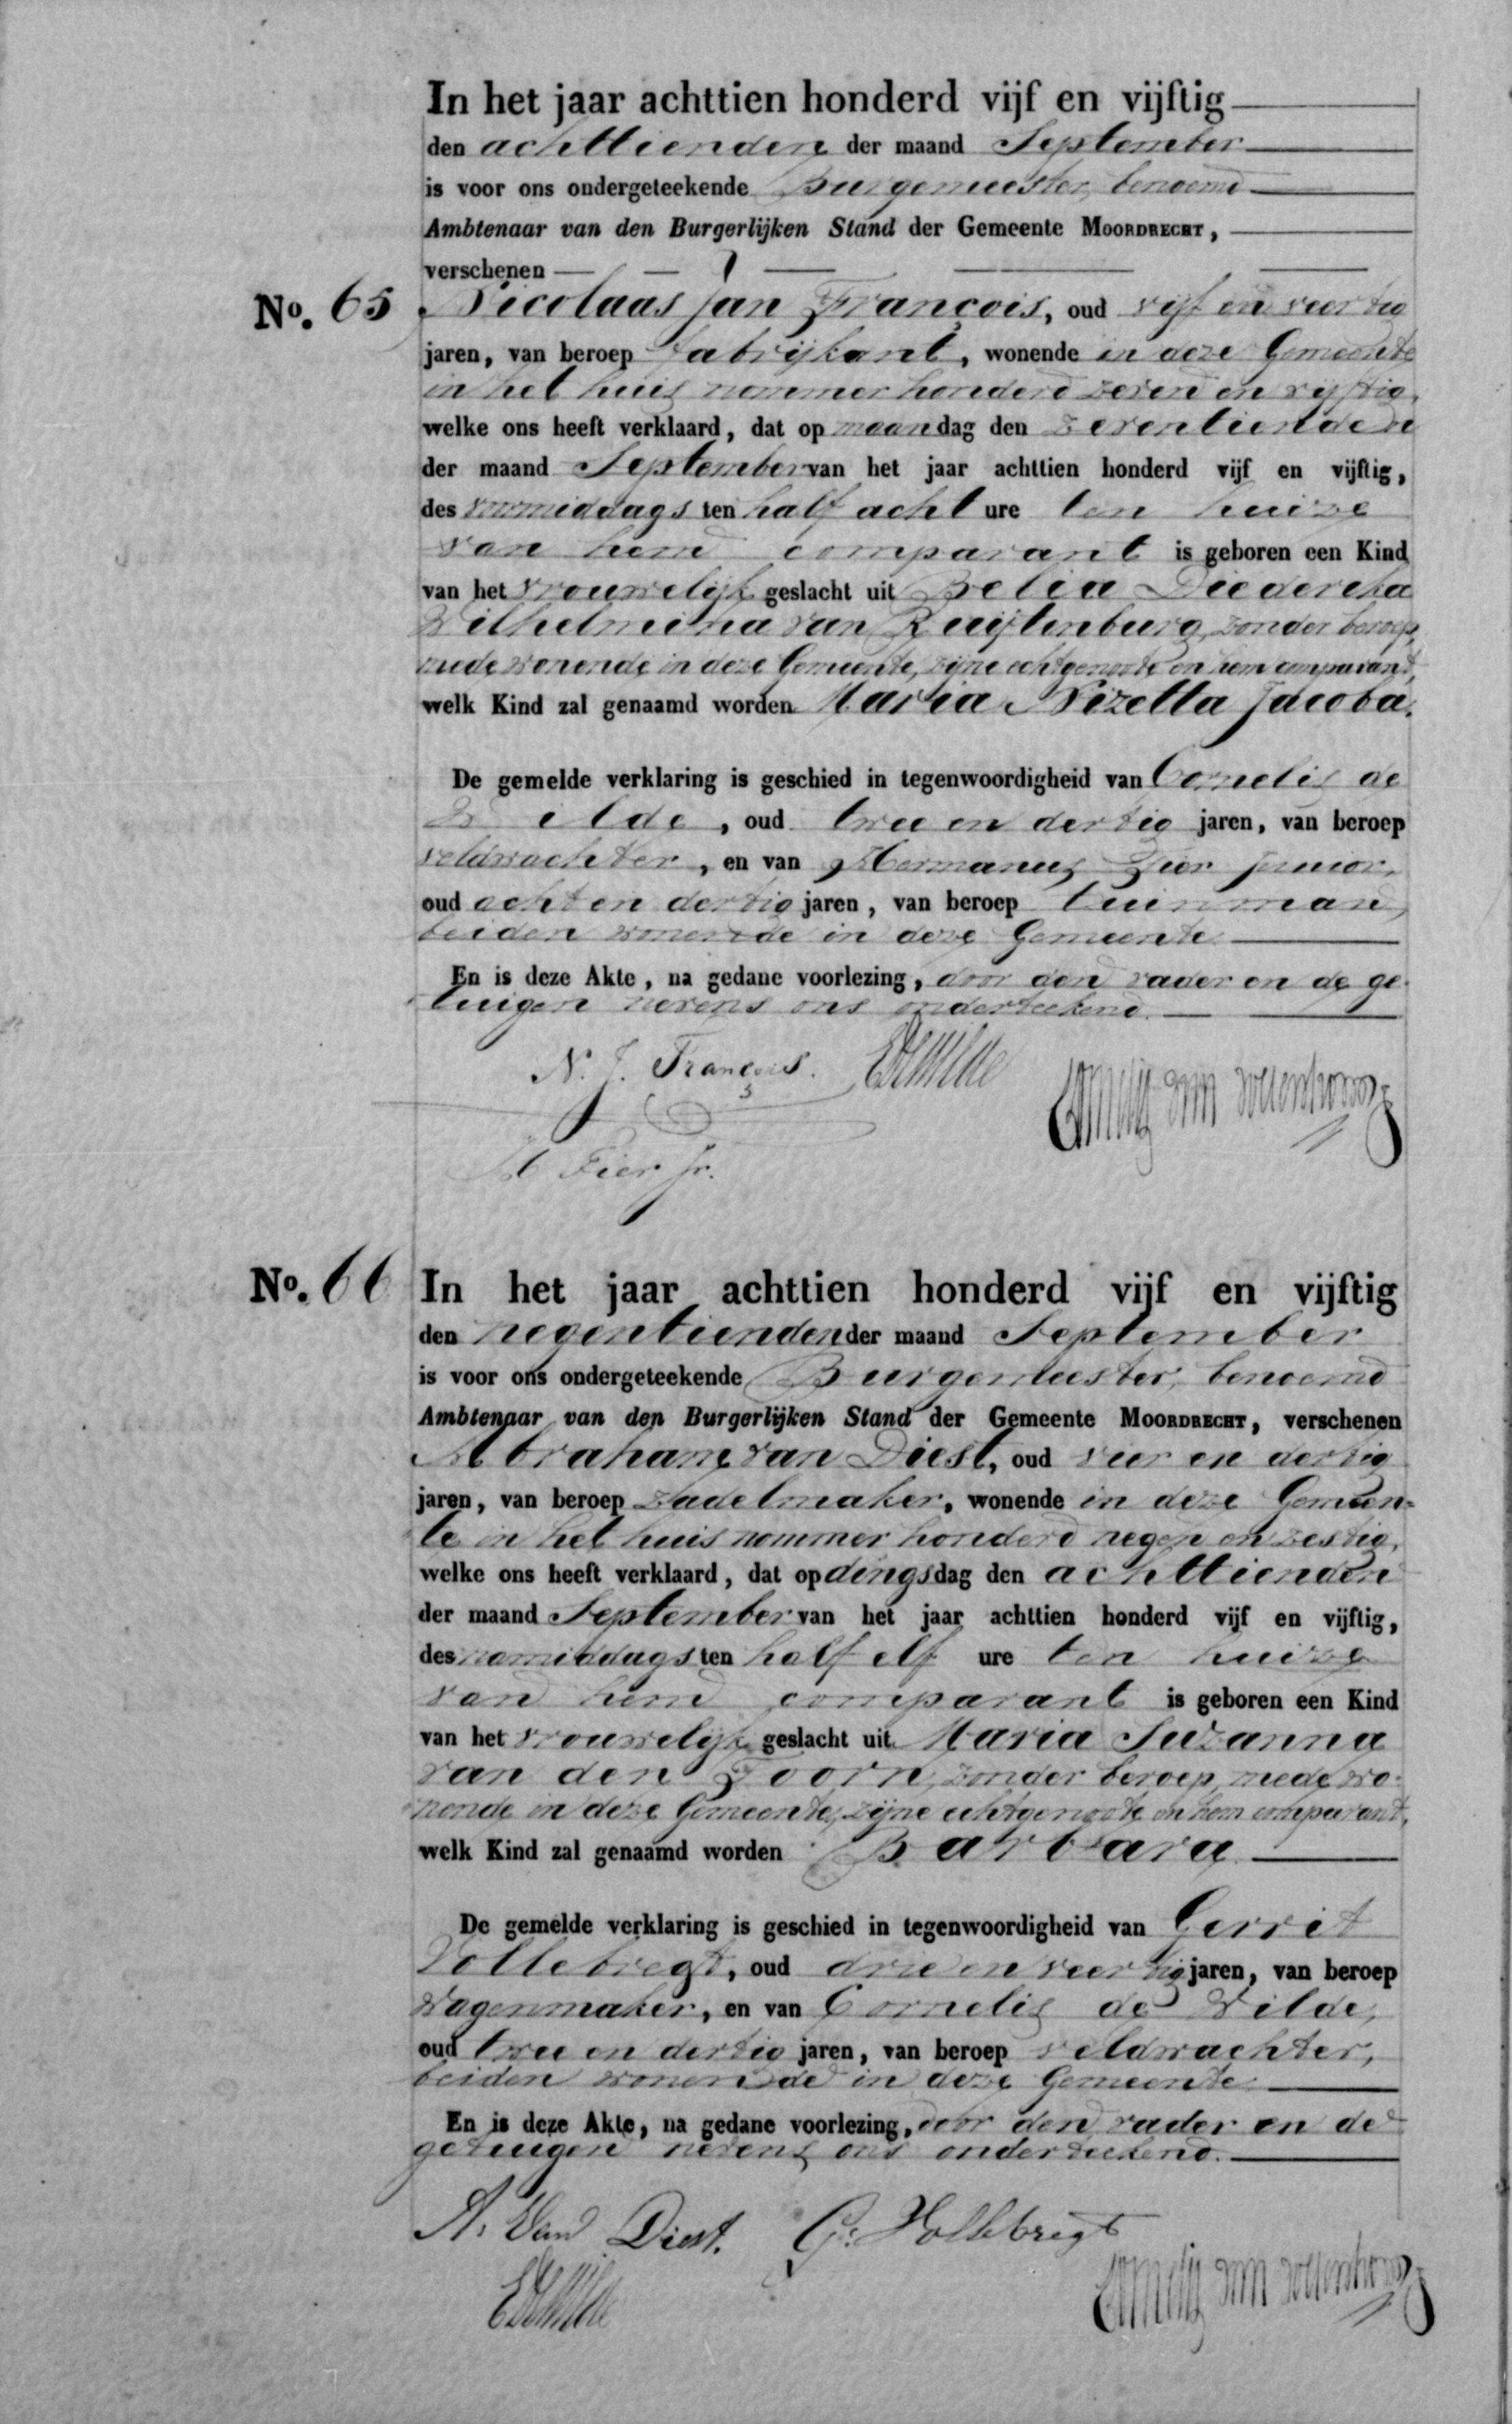 In het jaar achttien honderd vijf en vijftig
den achttienden der maand September
is voor ons ondergeteekende Burgemeester, benoemd
Ambtenaar van den Burgerlijken Stand der Gemeente Moordrecht,
verschenen
No. 65 Nicolaas Jan François, oud vijf en veertig
jaren, van beroep Fabrijkant, wonende in deze Gemeente
in het huis nommer honderd zeven en vijftig,
welke ons heeft verklaard, dat op maandag den zeventienden
der maand September van het jaar achttien honderd vijf en vijftig,
des voormiddags ten half acht ure ten huize
van hem comparant is geboren een Kind
van het vrouwelijk geslacht uit Belia Diedereka
Wilhelmina van Ruijtenburg, zonder beroep,
mede wonende in deze Gemeente, zijne echtgenoote en hem comparant,
welk Kind zal genaamd worden Maria Nizetta Jacoba.
De gemelde verklaring is geschied in tegenwoordigheid van Cornelis de
Wilde, oud twee en dertig jaren, van beroep
veldwachter, en van Hermanus Fier junior,
oud acht en dertig jaren, van beroep tuinman,
beiden wonende in deze Gemeente.
En is deze Akte, na gedane voorlezing, door den vader en de ge-
tuigen nevens ons onderteekend.
N. J. François. CdeWilde
H Fier Jr.
No. 66 In het jaar achttien honderd vijf en vijftig
den negentienden der maand September
is voor ons ondergeteekende Burgemeester, benoemd
Ambtenaar van den Burgerlijken Stand der Gemeente Moordrecht, verschenen
Abraham van Diest, oud vier en dertig
jaren, van beroep Zadelmaker, wonende in deze Gemeen-
te in het huis nommer honderd negen en zestig,
welke ons heeft verklaard, dat op dingsdag den achttienden
der maand September van het jaar achttien honderd vijf en vijftig,
des namiddags ten half elf ure ten huize
van hem comparant is geboren een Kind
van het vrouwelijk geslacht uit Maria Suzanna
van den Toorn, zonder beroep, mede wo-
nende in deze Gemeente, zijne echtgenoote en hem comparant,
welk Kind zal genaamd worden Barbara
De gemelde verklaring is geschied in tegenwoordigheid van Gerrit
Vollebregt, oud drie en veertig jaren, van beroep
Wagenmaker, en van Cornelis de Wilde,
oud twee en dertig jaren, van beroep veldwachter,
beiden wonende in deze Gemeente.
En is deze Akte, na gedane voorlezing, door den vader en de
getuigen nevens ons onderteekend.
A. Van Diest. G. Vollebregt
CdeWilde